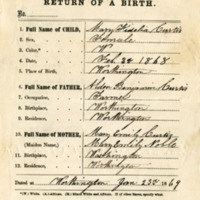 RETURN OF A BIRTH.
No.
1. Full Name of CHILD, Mary Fidelia Curtis
2. Sex, Female
3. Color,* W
4. Date of Birth, Feb 24 1868
5. Place of Birth, Worthington
6. Full Name of FATHER, Benjamin Curtis
7. Occupation, Farmer
8. Birthplace, Worthington
9. Residence, Worthington
10. Full Name of MOTHER, Mary Emily Curtis
(Maiden Name,) Mary Emily Noble
11. Birthplace, Washington
12. Residence, Worthington
Dated at Worthington Jan 23d 1869